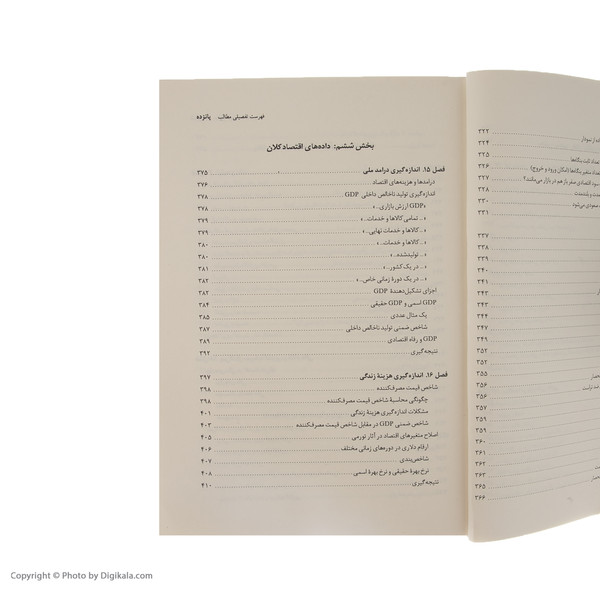 ۳۲۲
ده از نمودار ۳۲۴
۳۲۵
تعداد متغیر بنگاه‌ها (امکان ورود و خروج) ۳۲۶
سود اقتصادی صفر باز هم در بازار می‌مانند؟ ۳۲۷
۳۲۸
صعودی می‌شود ۳۳۰
۳۳۱
۳۳۷
۳۳۸
۳۳۹
۳۴۰
۳۴۱
۳۴۳
۳۴۴
۳۴۷
۳۴۹
۳۵۲
۳۵۲
۳۵۵
۳۵۶
۳۵۶
۳۵۹
۳۵۹
۳۶۰
۳۶۱
۳۶۲
۳۶۳
۳۶۵
۳۶۶
فهرست تفصیلی مطالب پانزده
بخش ششم: داده‌های اقتصاد کلان
فصل ۱۵. اندازه‌گیری درامد ملی ۳۷۵
درامدها و هزینه‌های اقتصاد ۳۷۶
اندازه‌گیری تولید ناخالص داخلی GDP ۳۷۸
«GDP ارزش بازاری..» ۳۷۸
«.. تمامی کالاها و خدمات..» ۳۷۹
«.. کالاها و خدمات نهایی..» ۳۷۹
«.. کالاها و خدمات..» ۳۸۰
«.. تولیدشده..» ۳۸۰
«.. در یک کشور..» ۳۸۱
«.. در یک دورهٔ زمانی خاص..» ۳۸۲
اجزای تشکیل‌دهندهٔ GDP ۳۸۲
GDP اسمی و GDP حقیقی ۳۸۴
یک مثال عددی ۳۸۵
شاخص ضمنی تولید ناخالص داخلی ۳۸۷
GDP و رفاه اقتصادی ۳۸۹
نتیجه‌گیری ۳۹۲
فصل ۱۶. اندازه‌گیری هزینهٔ زندگی ۳۹۷
شاخص قیمت مصرف‌کننده ۳۹۸
چگونگی محاسبهٔ شاخص قیمت مصرف‌کننده ۳۹۸
مشکلات اندازه‌گیری هزینهٔ زندگی ۴۰۱
شاخص ضمنی GDP در مقابل شاخص قیمت مصرف‌کننده ۴۰۳
اصلاح متغیرهای اقتصاد در آثار تورمی ۴۰۵
ارقام دلاری در دوره‌های زمانی مختلف ۴۰۶
شاخص‌بندی ۴۰۷
نرخ بهرهٔ حقیقی و نرخ بهرهٔ اسمی ۴۰۸
نتیجه‌گیری ۴۱۰
Copyright © Photo by Digikala.com